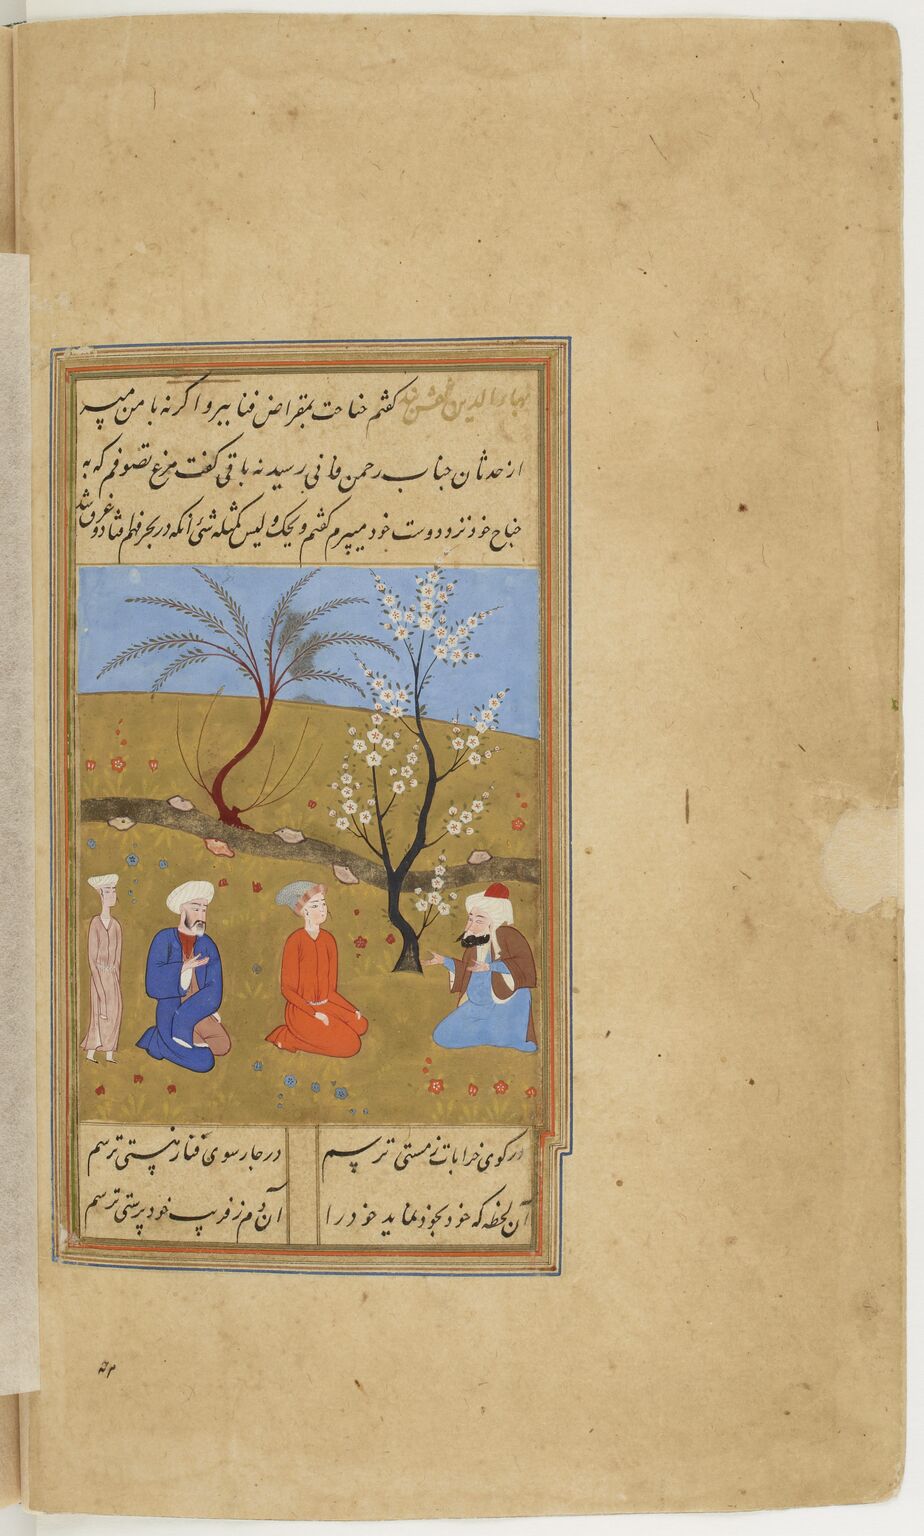 بهاء الدین نقشبند گفتم جناحت بمقراض فنا ببر و اگر نه با من مپر
از حدثان جناب رحمن فانی رسید نه باقی گفت مرغ تصوفم که به
جناح خود نزد دوست خود میپرم گفتم ویحک و لیس کمثله شئ آنکه در بحر فهم فتاد و غرق شد
در کوی خرابات ز مستی ترسم
در چارسوی فنا ز هستی ترسم
آن لحظه که خود بخود نماید خود را
آن دم ز فریب خودپرستی ترسم